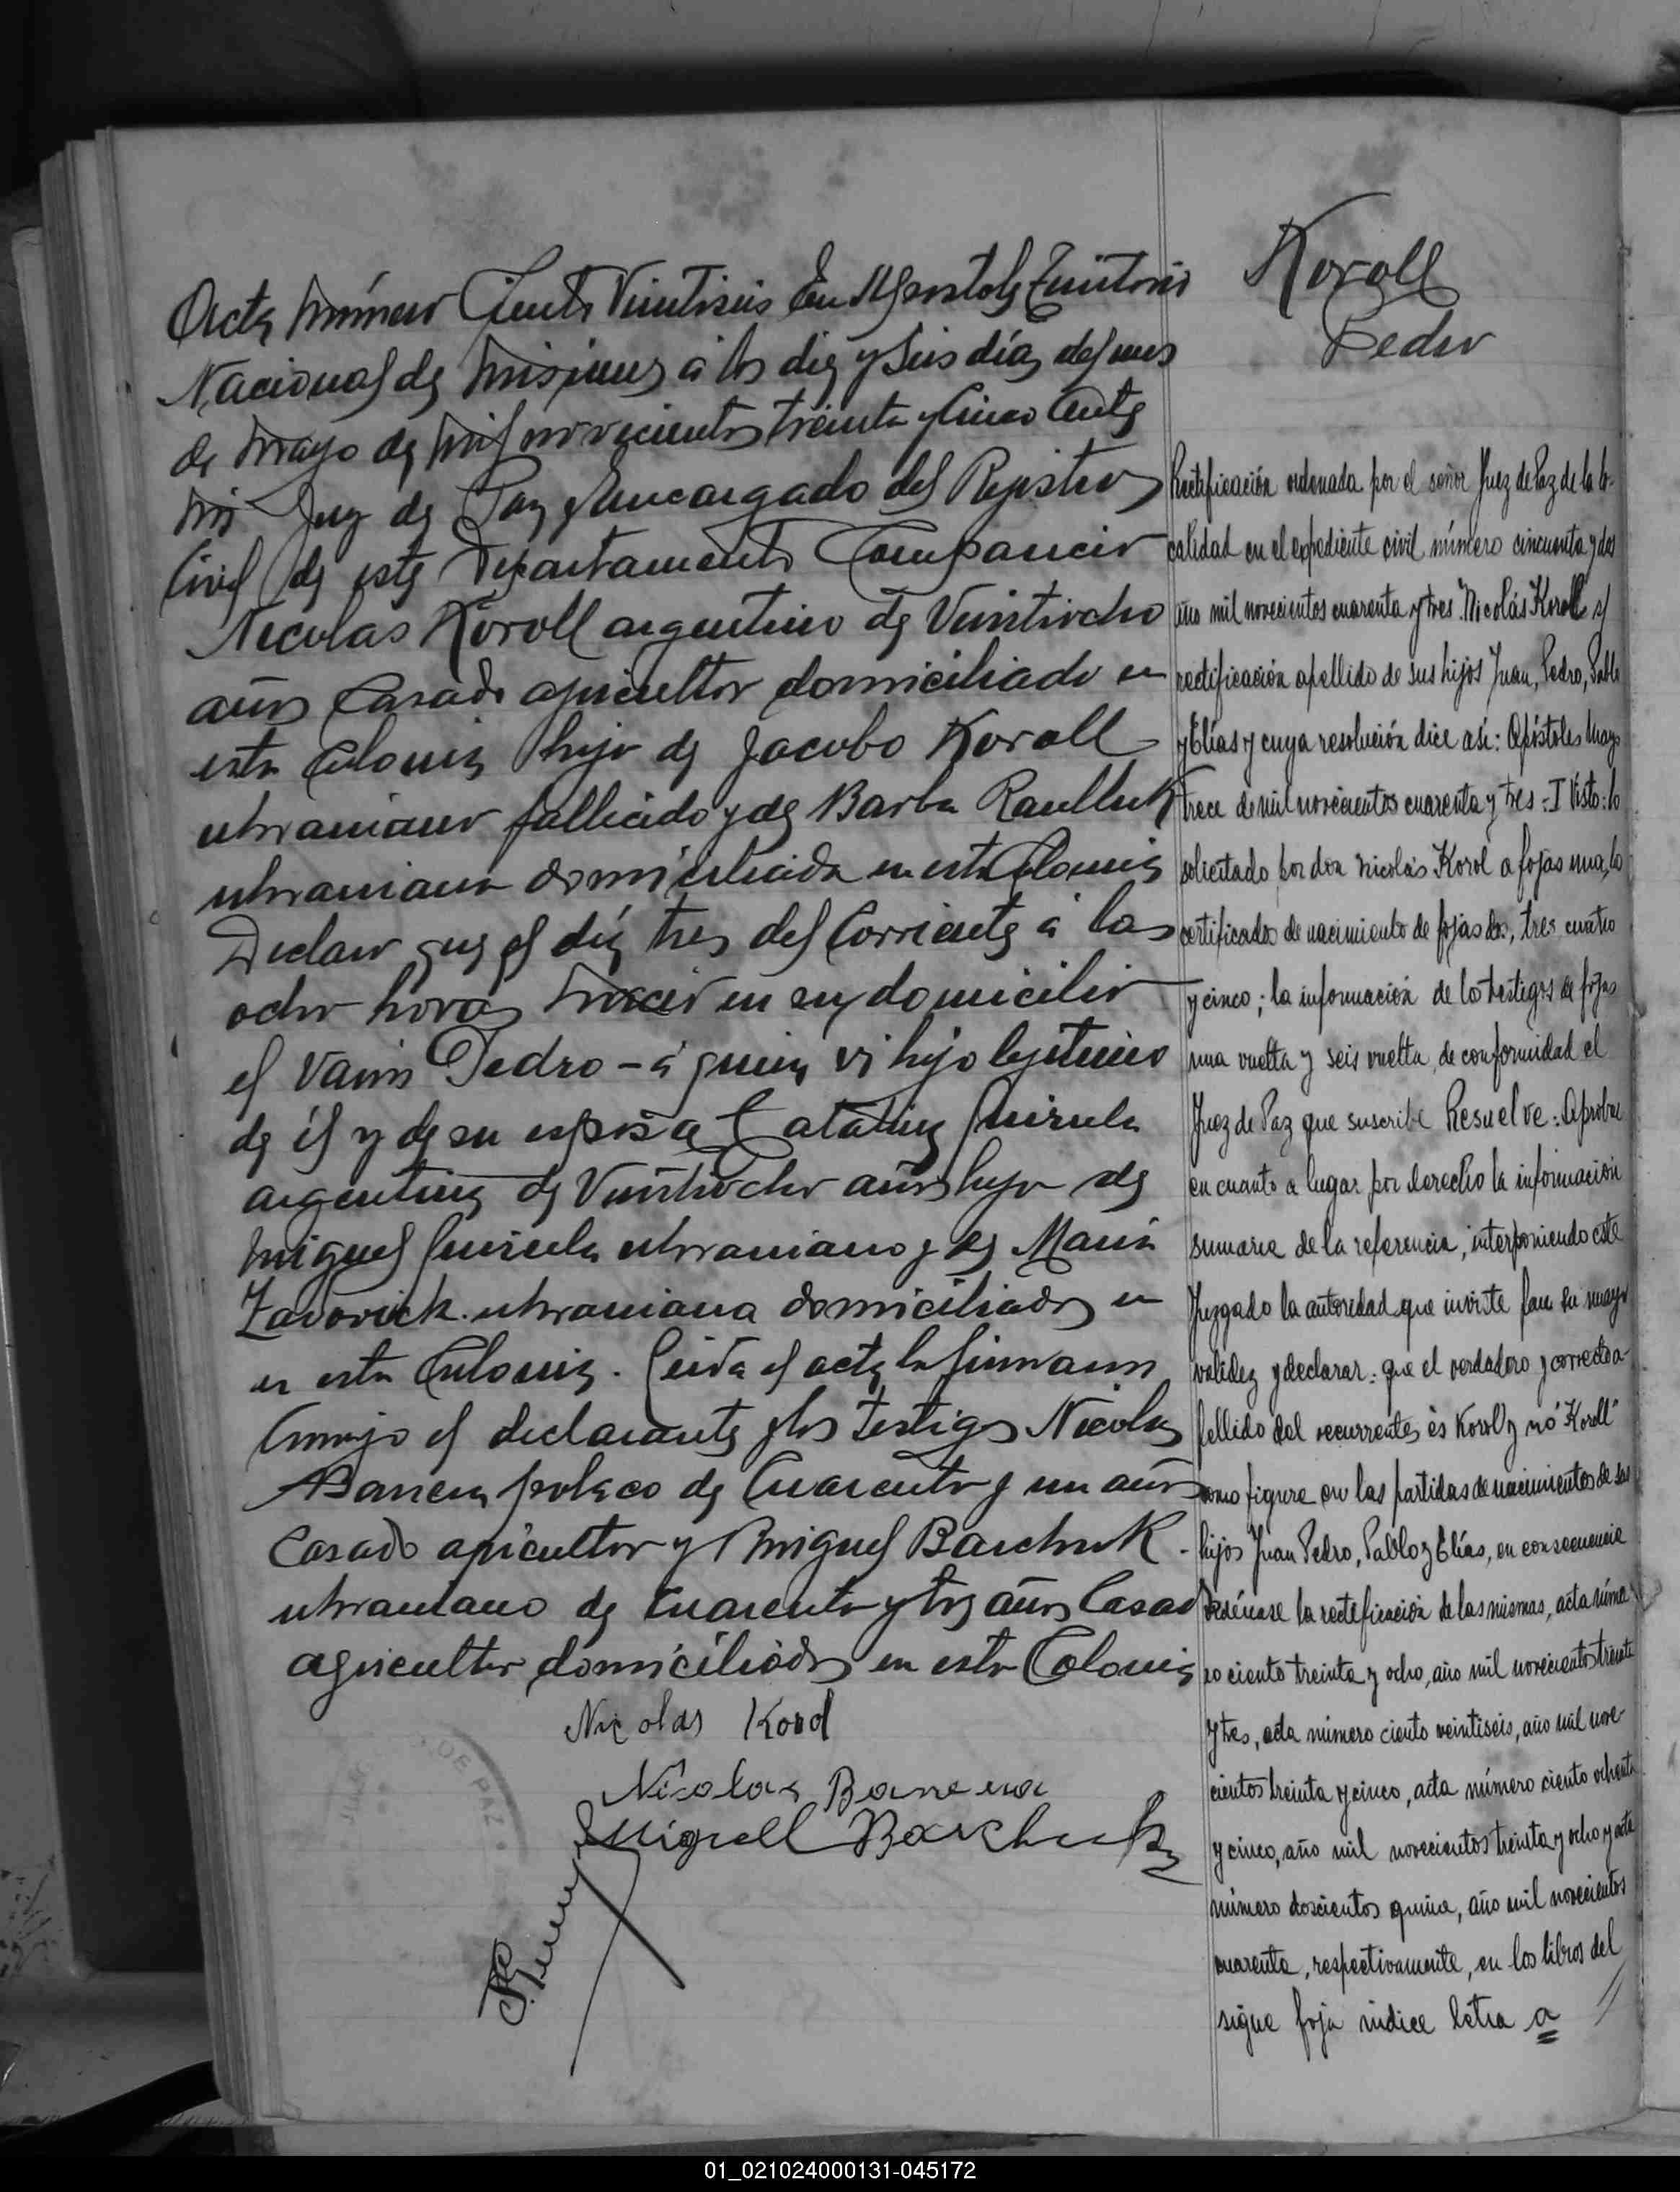 Acta número Ciento Veintiseis En Apostoles Territorio
Nacional de Misiones á los diez y seis días del mes
de Mayo de mil novecientos treinta y cinco Ante
mi Juez de Paz y Encargado del Rejistro
Civil de este Departamento Comparecio
Nicolas Koroll argentino de Veintiocho
años Casado agricultor domiciliado en
esta Colonia hijo de Jacobo Koroll
ukraniano fallecido y de Barba
ukraniana domiciliada en esta Colonia
Declaro que el día tres del Corriente á las
ocho horas nació en su domicilio
el Varon Pedro - á quien vi hijo lejitimo
de él y de su esposa Catalina
argentina de Veintiocho años hija de
Miguel ukraniano y de Maria
Zadorick ukraniana domiciliados en
en esta Colonia. Leida el acta la firmaron
Conmigo el declarante y los testigos Nicolas
polaco de Cuarenta y un años
Casado agricultor y Miguel Barchuk -
ukraniano de Cuarenta y tres años Casado
agricultor domiciliados en esta Colonia
Nicolas Korol
Nicolas
Miguell Barchuk
DE PAZ
Koroll
Pedro
Rectificación ordenada por el señor Juez de Paz de la lo-
calidad en el expediente civil número cincuenta y dos
año mil novecientos cuarenta y tres "Nicolás Koroll s/
rectificación apellido de sus hijos Juan, Pedro, Pablo
y Elías y cuya resolución dice así: Apóstoles Mayo
trece de mil novecientos cuarenta y tres = I Visto: lo
solicitado por don Nicolás Korol a fojas una, los
certificados de nacimiento de fojas dos, tres cuatro
y cinco; la información de los testigos de fojas
una vuelta y seis vuelta, de conformidad el
Juez de Paz que suscribe Resuelve: Aprobar
en cuanto a lugar por derecho la información
sumaria de la referencia, interponiendo este
Juzgado la autoridad que inviste para su mayor
validez y declarar: que el verdadero y correcto a-
pellido del recurrente, es Korol y nó "Koroll"
como figura en las partidas de nacimientos de sus
hijos Juan Pedro, Pablo y Elías, en consecuencia
ordénase la rectificación de las mismas, acta núme-
ro ciento treinta y ocho, año mil novecientos treinta
y tres, acta número ciento veintiseis, año mil nove-
cientos treinta y cinco, acta número ciento ochenta
y cinco, año mil novecientos treinta y ocho y acta
número doscientos quince, año mil novecientos
cuarenta, respectivamente, en los libros del
sigue foja indice letra a //
01_021024000131-045172